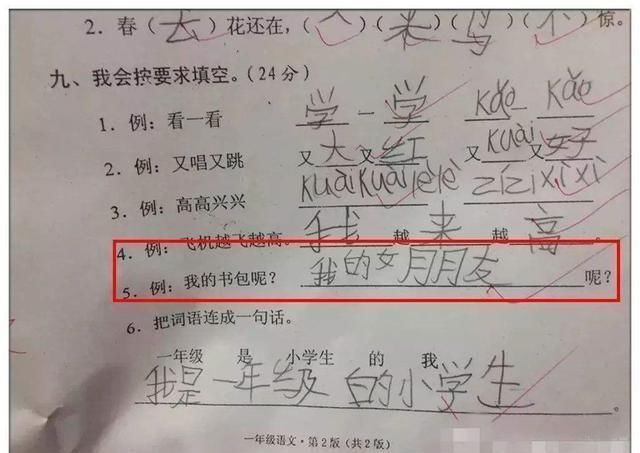 2. 春(去)花还在，(人)(来)(鸟)(不)惊。
九、我会按要求填空。(24分)
1. 例：看一看 学一学 kǎo一kǎo
2. 例：又唱又跳 又大又红 又kuài又好
3. 例：高高兴兴 kuàikuàilèlè zǐzǐxìxì
4. 例：飞机越飞越高。 我越来越高。
5. 例：我的书包呢？ 我的女月月友呢？
6. 把词语连成一句话。
一年级 是 小学生 的 我
我是一年级白的小学生。
一年级语文·第2版(共2版)